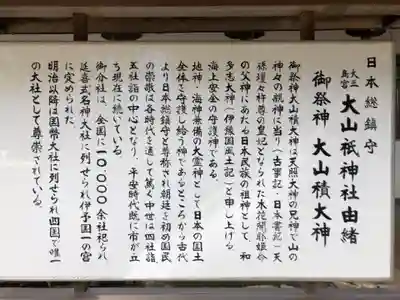 日本総鎮守
大三島宮 大山祇神社由緒
御祭神 大山積大神
御祭神大山積大神は天照大神の兄神で山の
神々の親神に当り(古事記・日本書紀)天
孫瓊々杵尊の皇妃となられた木花開耶姫命
の父神にあたる日本民族の祖神として、和
多志大神(伊豫国風土記)と申し上げる
海上安全の守護神である。
地神・海神兼備の大霊神として日本の国土
全体を守護し給う神であるところから古代
より日本総鎮守と尊称され朝廷を初め国民
の崇敬は各時代を通して篤く中世は四社詣
五社詣の中心となり、平安時代既に市が立
ち現在に続いている
御分社は、全国に一〇、〇〇〇余社祀られ
延喜式名神大社に列せられ伊予国一の宮
に定められた
明治以降は国幣大社に列せられ四国で唯一
の大社として尊崇されている。